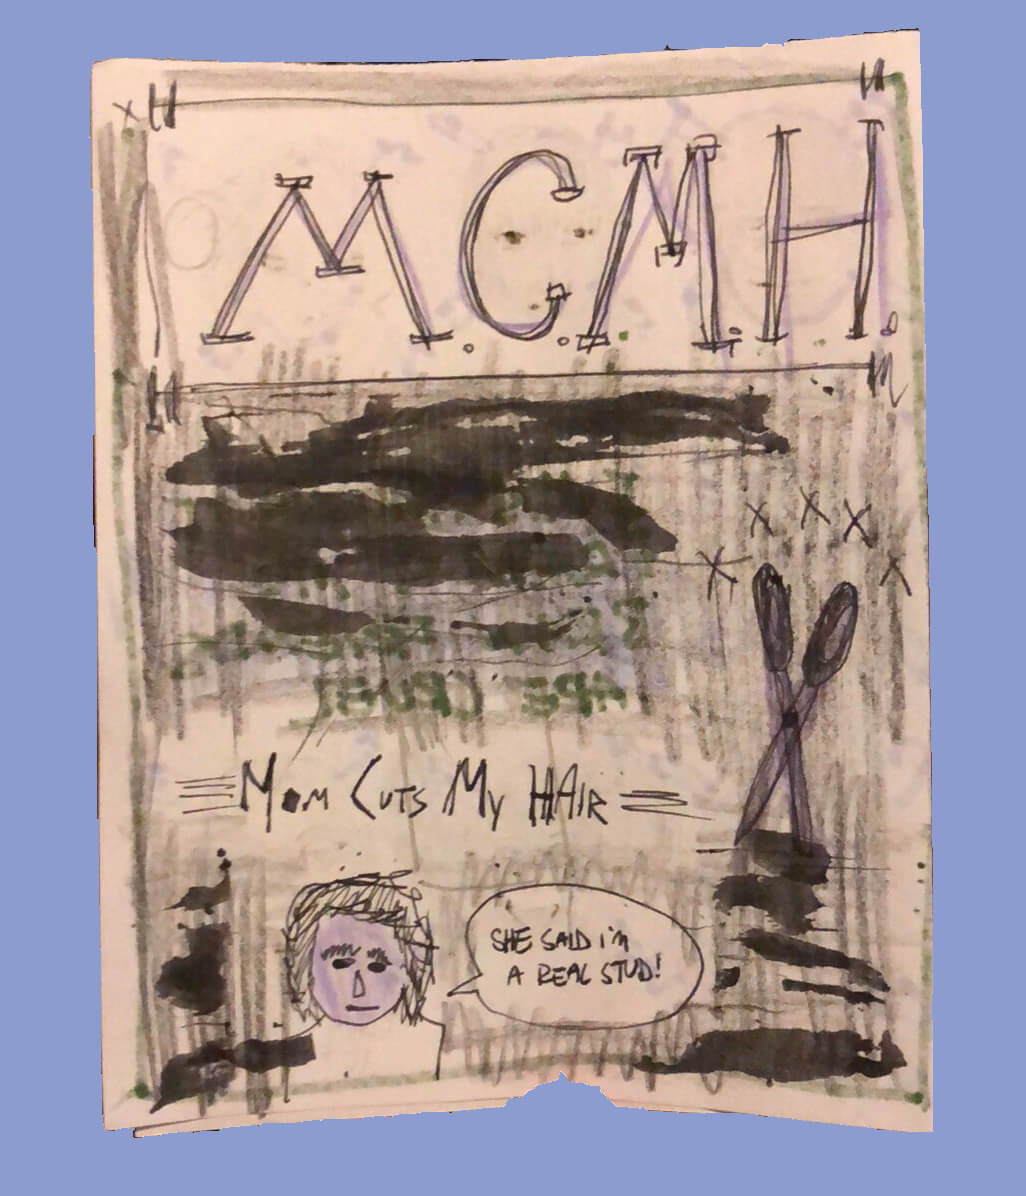 M.C.M.H.
MOM CUTS MY HAIR
SHE SAID i'm
A REAL STUD!